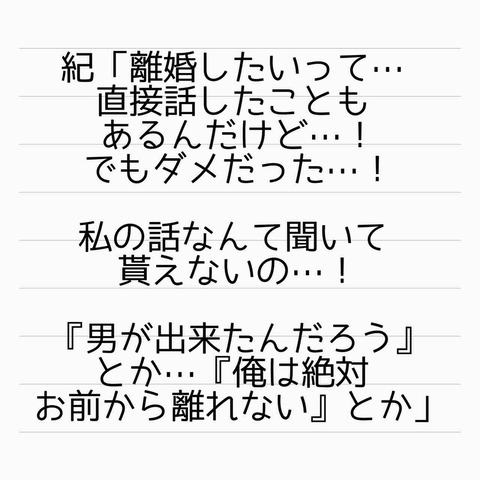 紀「離婚したいって…
直接話したことも
あるんだけど…！
でもダメだった…！
私の話なんて聞いて
貰えないの…！
『男が出来たんだろう』
とか…『俺は絶対
お前から離れない』とか」